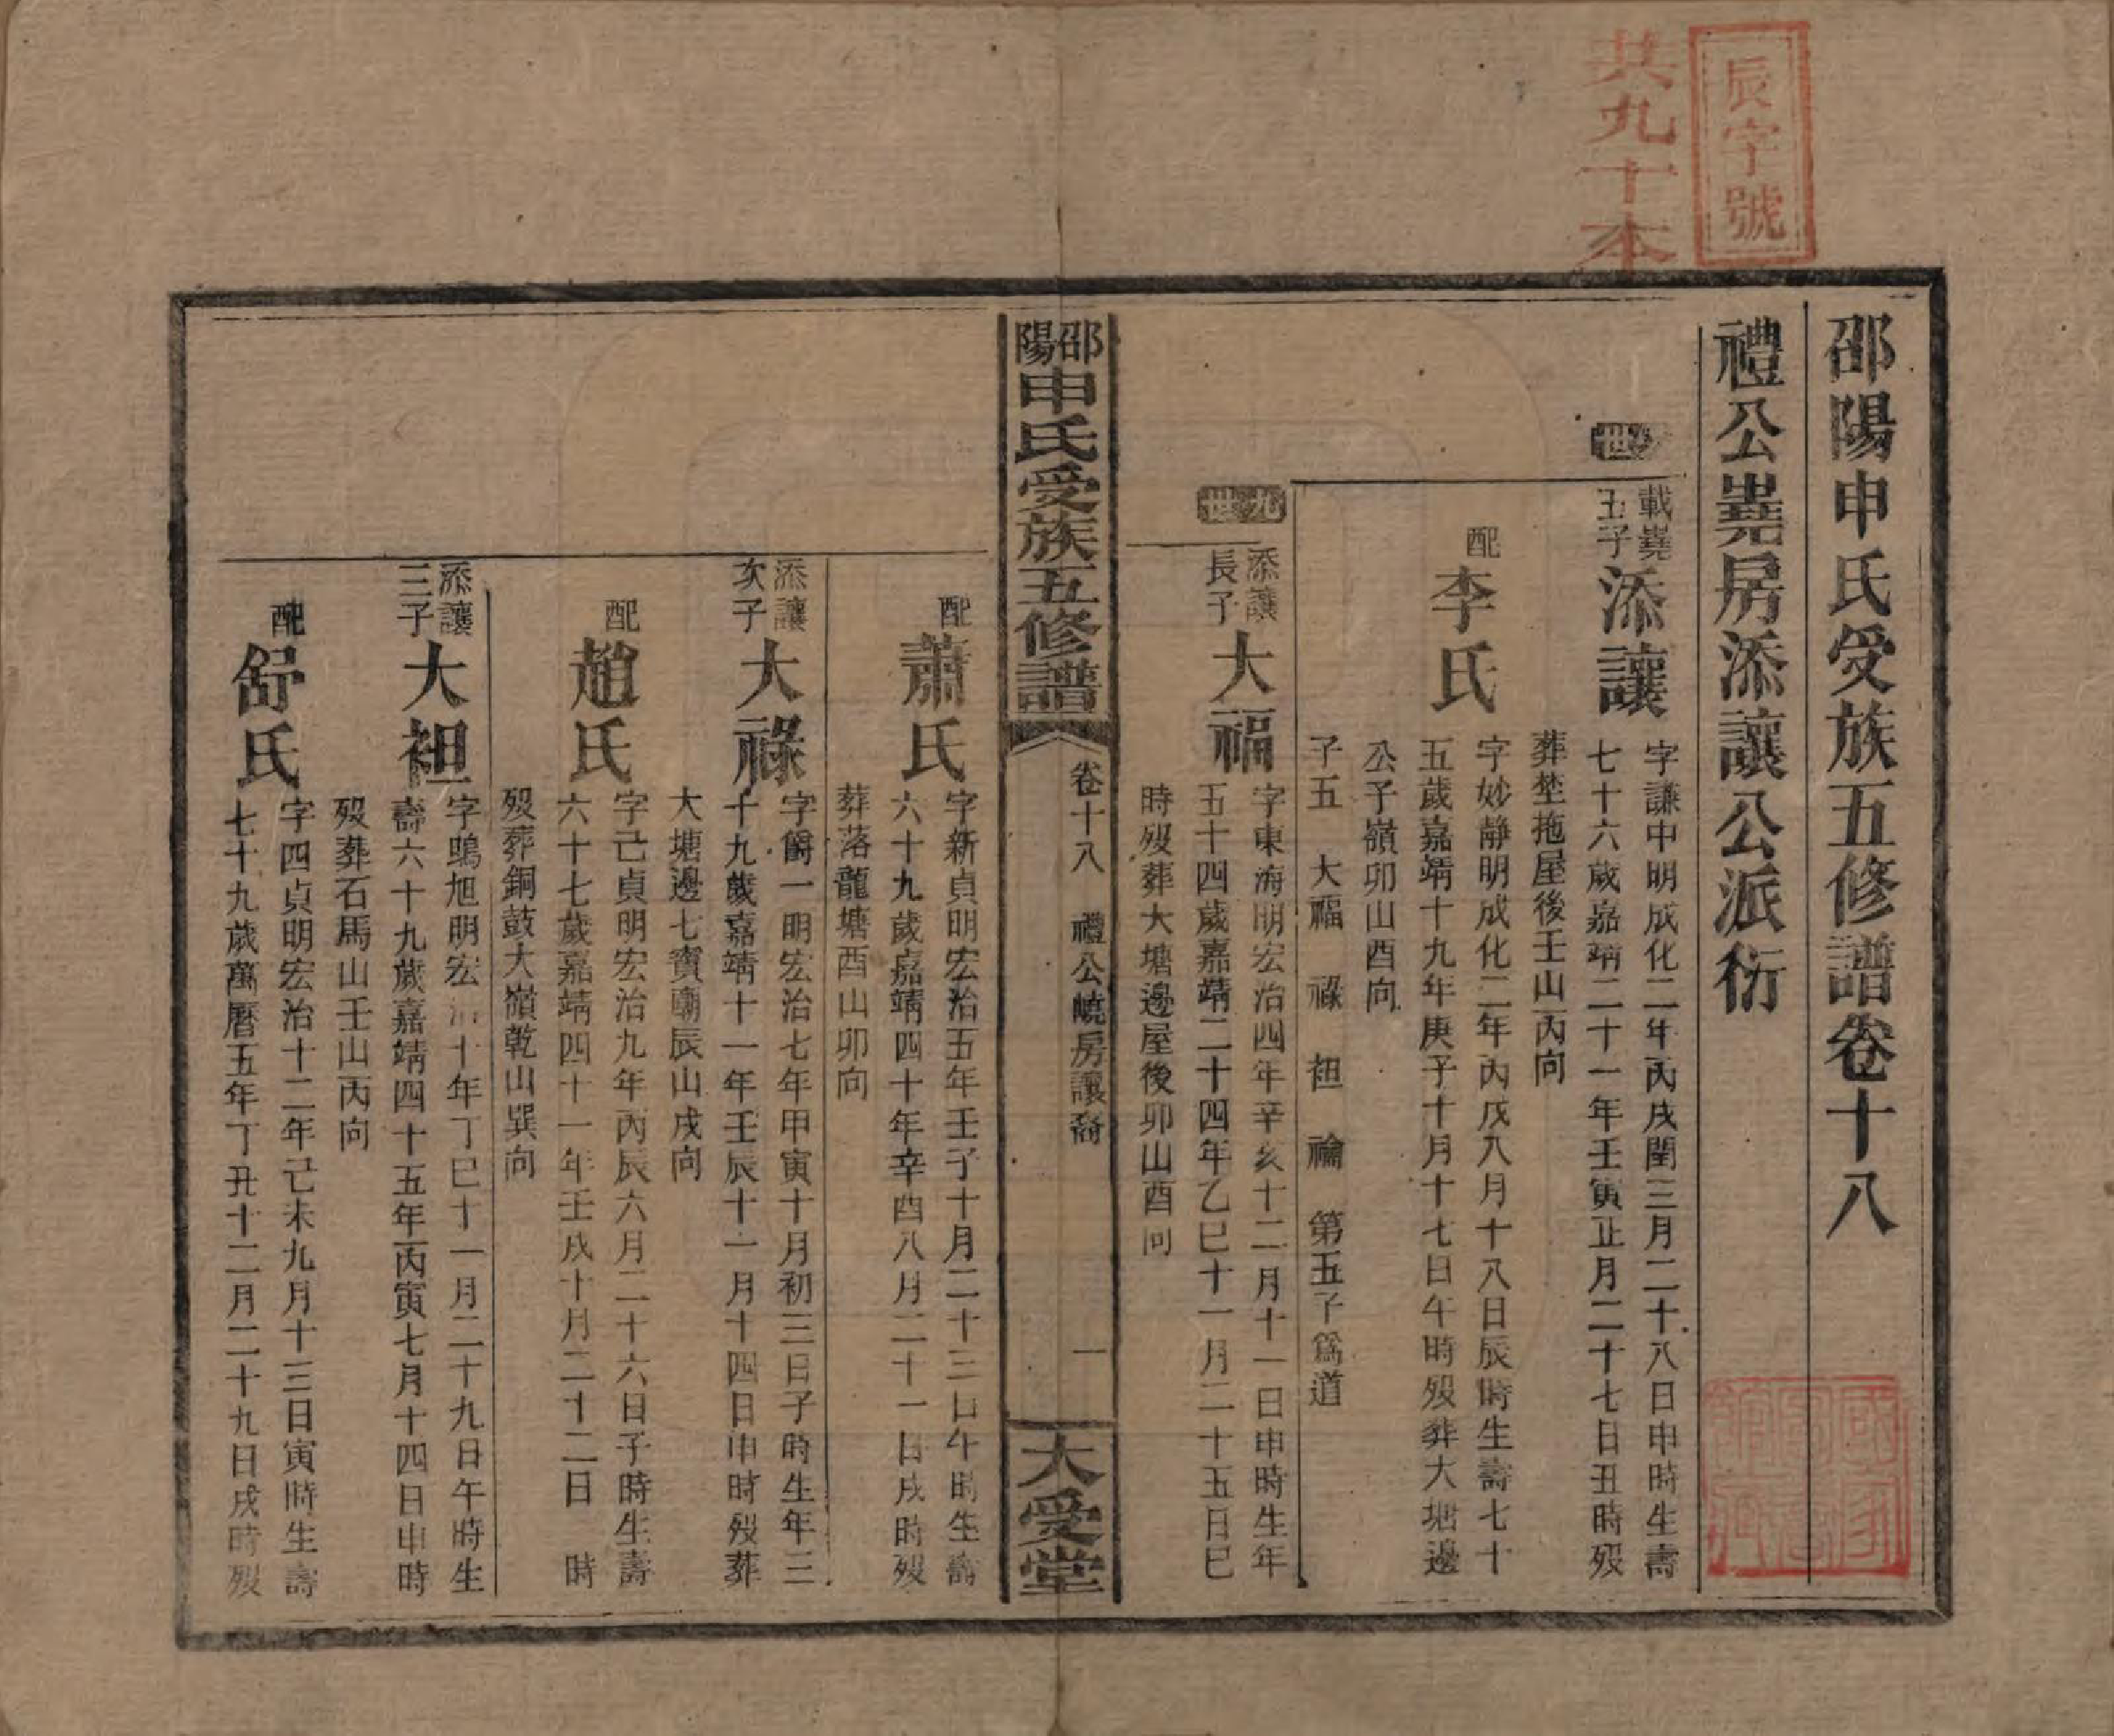 辰字號
共九十本
邵陽申氏受族五修譜卷十八
禮公嶤房添讓公派衍
世
載嶤五子
添讓
字謙中明成化二年丙戌閏三月二十八日申時生壽
七十六歲嘉靖二十一年壬寅正月二十七日丑時歿
葬埜拖屋後壬山丙向
配
李氏
字妙靜明成化二年丙戌八月十八日辰時生壽七十
五歲嘉靖十九年庚子十月十七日午時歿葬大塘邊
公子嶺卯山酉向
子五 大福 祿 袓 禴 第五子爲道
九世
添讓長子
大福
字東海明宏治四年辛亥十二月十一日申時生年
五十四歲嘉靖二十四年乙巳十一月二十五日巳
時歿葬大塘邊屋後卯山酉向
邵陽申氏受族五修譜
卷十八 禮公嶢房讓裔
一
大受堂
配
蕭氏
字新貞明宏治五年壬子十月二十三日午時生壽
六十九歲嘉靖四十年辛酉八月二十一日戌時歿
葬落龍塘酉山卯向
添讓次子
大祿
字爵一明宏治七年甲寅十月初三日子時生年三
十九歲嘉靖十一年壬辰十一月十四日申時歿葬
大塘邊七寶廟辰山戌向
配
趙氏
字己貞明宏治九年丙辰六月二十六日子時生壽
六十七歲嘉靖四十一年壬戌十月二十二日 時
歿葬銅鼓大嶺乾山巽向
添讓三子
大袓
字鵾旭明宏治十年丁巳十一月二十九日午時生
壽六十九歲嘉靖四十五年丙寅七月十四日申時
歿葬石馬山壬山丙向
配
舒氏
字四貞明宏治十二年己未九月十三日寅時生壽
七十九歲萬曆五年丁丑十二月二十九日戌時歿